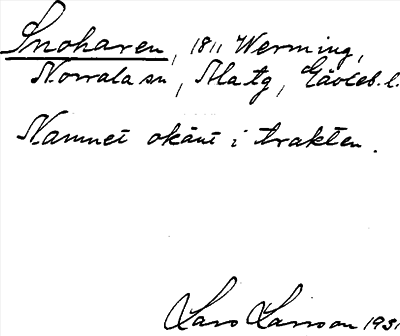 Snoharen, 1811 Werming,
Norrala sn, Matg, Gävleb. l.
Namnet okänt i trakten.
Lars Larsson 193